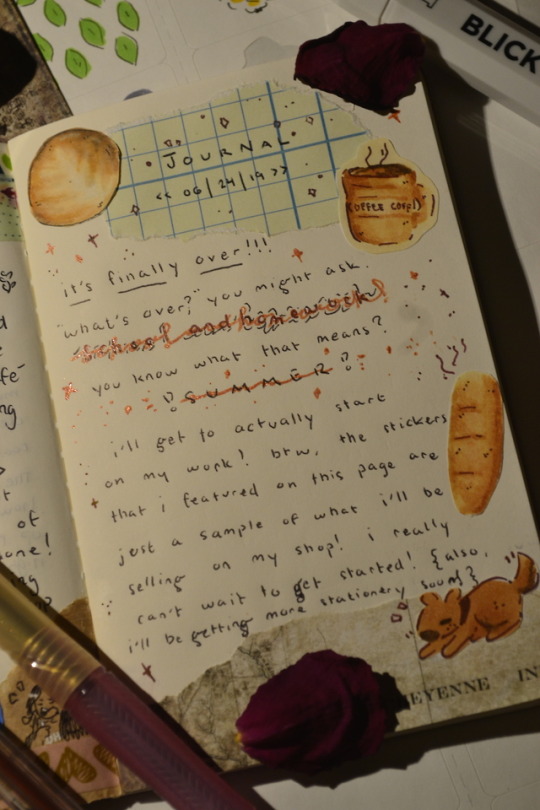 BLICK
JOURNAL
<< 06/24/19 >>
COFFEE CORP!)
it's finally over!!!
"what's over?" you might ask.
school and homework!
you know what that means?
SUMMER?
i'll get to actually start
on my work! btw, the stickers
that i featured on this page are
just a sample of what i'll be
selling on my shop! i really
can't wait to get started! {also,
i'll be getting more stationery soon!}
EYENNE IN
of